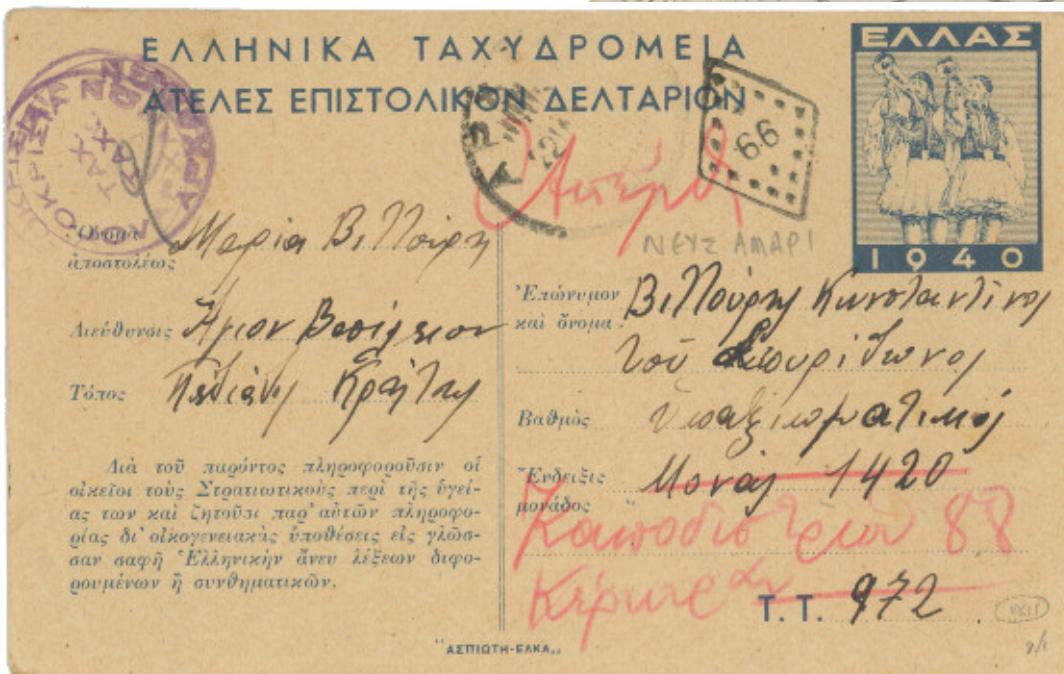 ΕΛΛΗΝΙΚΑ ΤΑΧΥΔΡΟΜΕΙΑ
ΑΤΕΛΕΣ ΕΠΙΣΤΟΛΙΚΟΝ ΔΕΛΤΑΡΙΟΝ
ΕΛΛΑΣ
1940
66
ΝΕΥΣ ΑΜΑΡΙ
Ὄνομα ἀποστολέως Μαρία Βιτλούρη
Διεύθυνσις Ἅγιον Βασίλειον
Τόπος Πεδιάδος Κρήτης
Διὰ τοῦ παρόντος πληροφοροῦσιν οἱ
οἰκεῖοι τοὺς Στρατιωτικοὺς περὶ τῆς ὑγεί-
ας των καὶ ζητοῦσι παρ' αὐτῶν πληροφο-
ρίας δι' οἰκογενειακὰς ὑποθέσεις εἰς γλῶσ-
σαν σαφῆ Ἑλληνικὴν ἄνευ λέξεων διφο-
ρουμένων ἢ συνθηματικῶν.
Ἐπώνυμον καὶ ὄνομα: Κωνσταντῖνος
τοῦ Σπυρίδωνος
Βαθμὸς ὑπαξιωματικός
Ἔνδειξις μονάδος Μονὰς 1420
Καποδιστρίου 88
Κέρκυραν
Τ.Τ. 972
"ΑΣΠΙΩΤΗ-ΕΛΚΑ,,